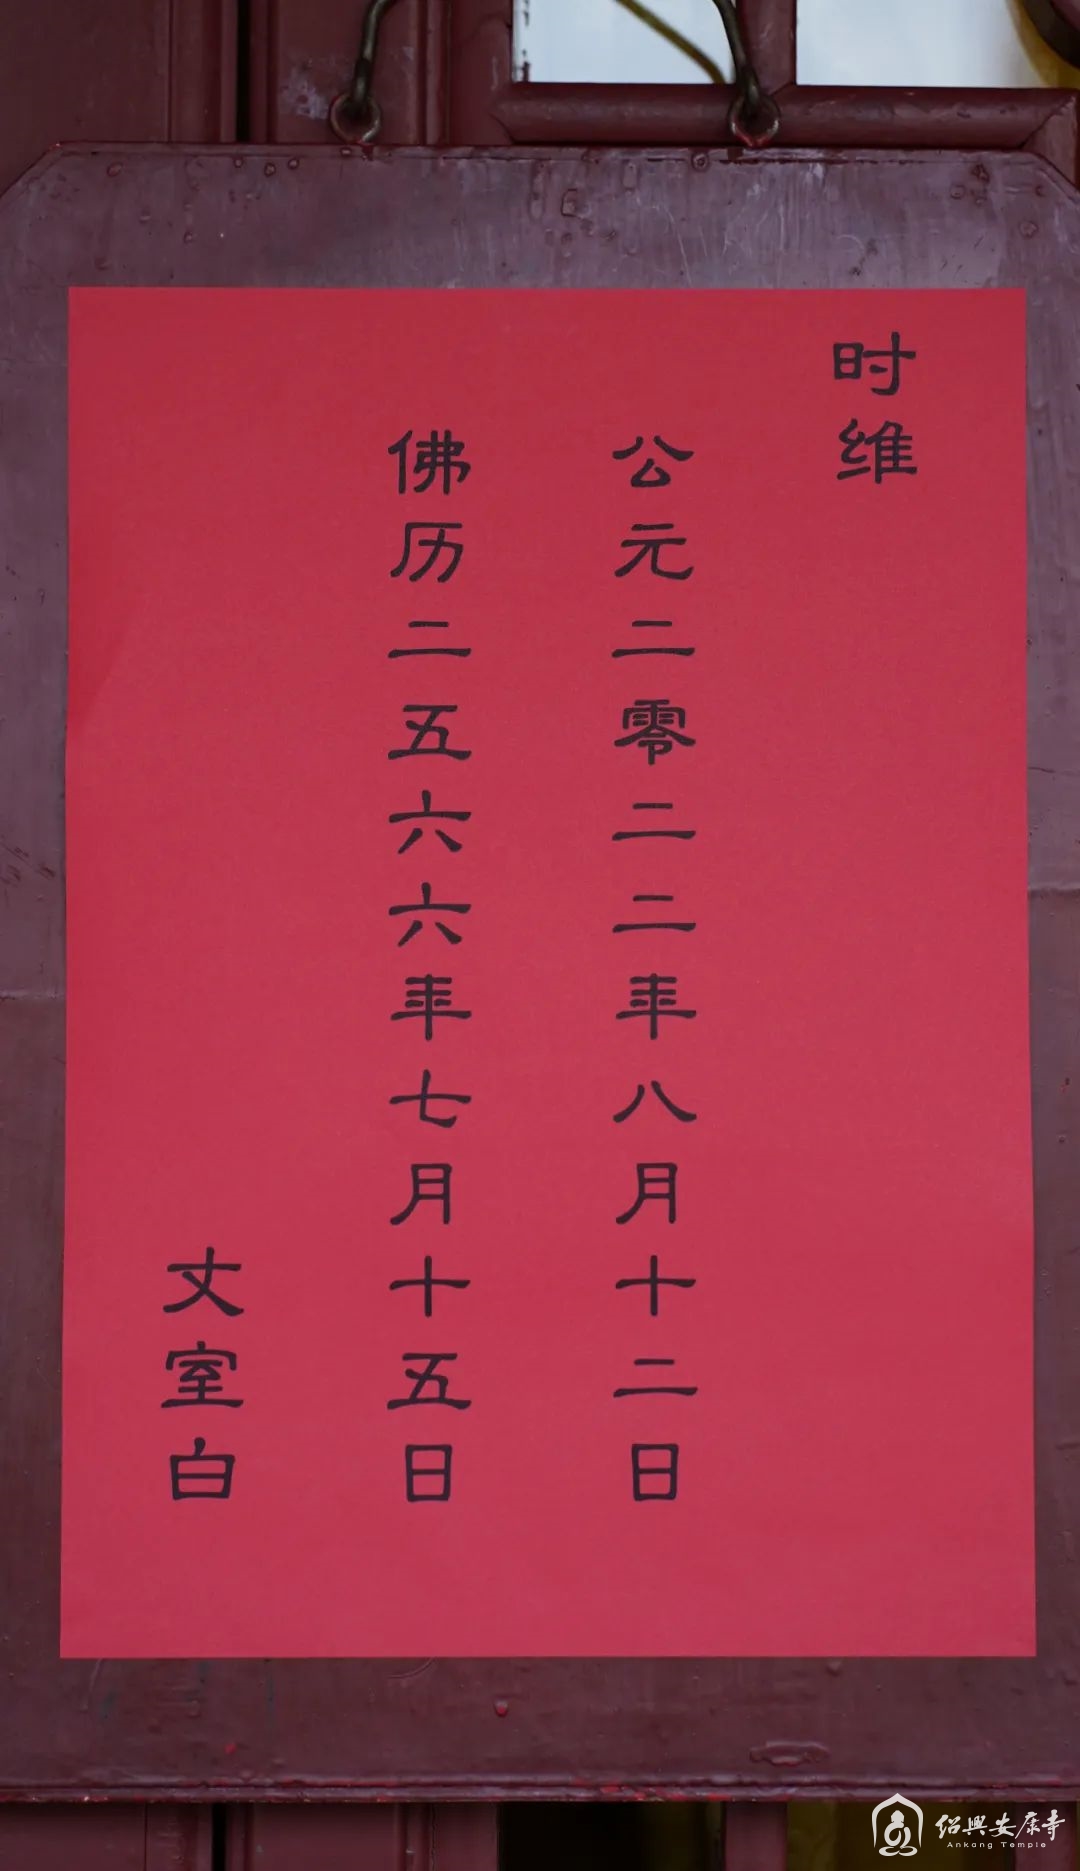 时维
公元二零二二年八月十二日
佛历二五六六年七月十五日
丈室白
绍興安康寺
Ankang Temple